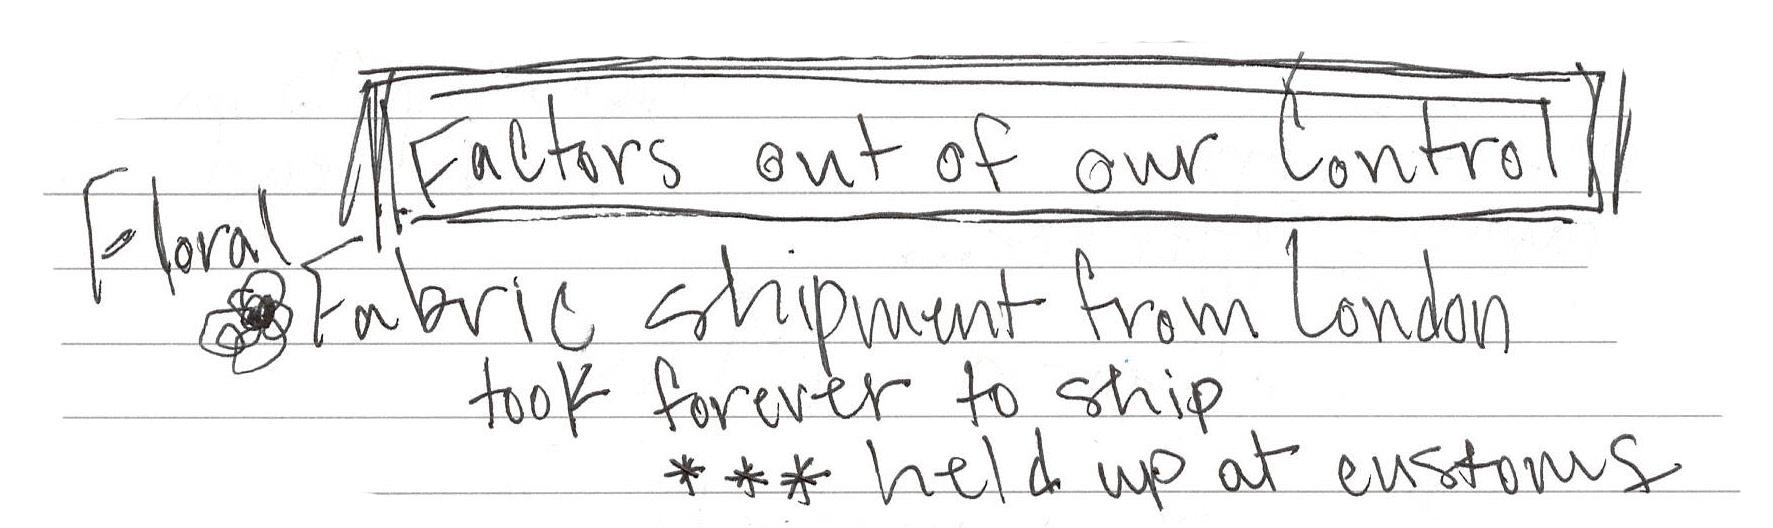 Factors out of our Control
Floral
Fabric shipment from London
took forever to ship
*** held up at customs